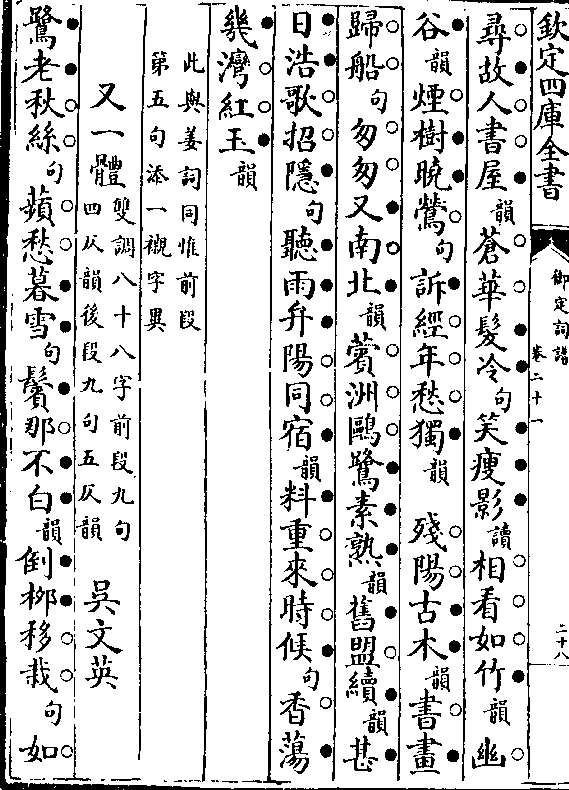 欽定四庫全書
御定詞譜
卷二十一
二十八
尋故人書屋韻蒼華髮冷句笑瘦影讀相看如竹韻幽
谷韻煙樹曉鶯句訴經年愁獨韻 殘陽古木韻書畫
歸船句匆匆又南北韻蘋洲鷗鷺素熟韻舊盟續韻甚
日浩歌招隱句聽雨弁陽同宿韻料重來時候句香蕩
幾灣紅玉韻
此與姜詞同惟前段
第五句添一襯字異
又一體 雙調八十八字前段九句
四仄韻後段九句五仄韻 吳文英
鷺老秋絲句蘋愁暮雪句鬢那不白韻倒栁移栽句如